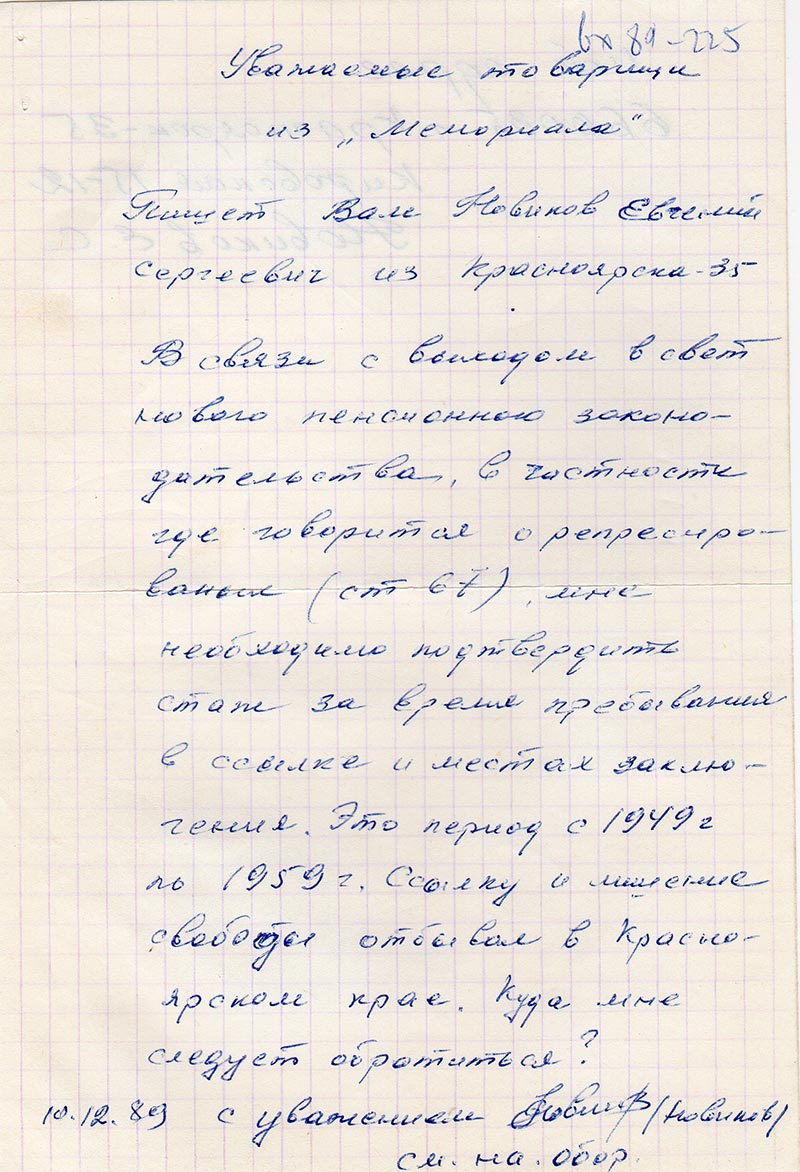 вх 89-225
Уважаемые товарищи
из „Мемориала"
Пишет Вам Новиков Евгений
Сергеевич из Красноярска-35
В связи с выходом в свет
нового пенсионного законо-
дательства, в частности
где говорится о репресиро-
ваных (ст 67), мне
необходимо подтвердить
стаж за время пребывания
в ссылке и местах заклю-
чения. Это период с 1949 г
по 1959 г. Ссылку и лишение
свободы отбывал в Красно-
ярском крае. Куда мне
следует обратиться?
10.12.89 с уважением (Новиков)
см. на. обор.